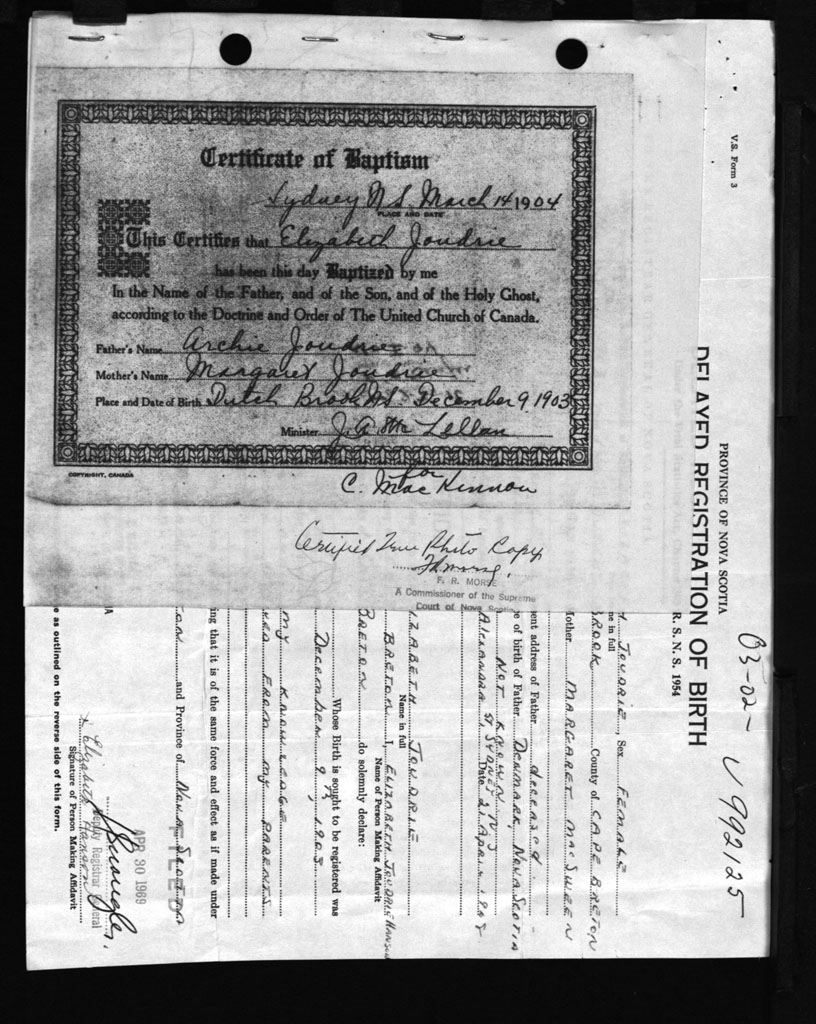 Certificate of Baptism
Sydney N.S. March 14 1904
PLACE AND DATE
This Certifies that Elizabeth Joudrie
has been this day Baptized by me
In the Name of the Father, and of the Son, and of the Holy Ghost,
according to the Doctrine and Order of The United Church of Canada.
Father's Name Archie Joudrie
Mother's Name Margaret Joudrie
Place and Date of Birth Dutch Brook N.S. December 9, 1903
Minister J. A. McLellan
for
COPYRIGHT, CANADA
C. MacKinnon
Certified True Photo Copy
F. R. MORSE
A Commissioner of the Supreme
Court of Nova
V.S. Form 3
03-02-
992125
PROVINCE OF NOVA SCOTIA
DELAYED REGISTRATION OF BIRTH
R. S. N. S. 1954
JOUDRIE, Sex FEMALE
me in full
BROOK County of CAPE BRETON
Mother MARGARET MACSWEEN
ent address of Father deceased
e of birth of Father DENMARK, NOVA SCOTIA
NOT KNOWN
ALEXANDRA ST SYDNEY N S Date 21 APRIL
IZABETH JOUDRIE
Name in full
BRETON I, ELIZABETH JOUDRIE HANSON
Name of Person Making Affidavit
BRETON do solemnly declare:
Whose Birth is sought to be registered was
DECEMBER 9, 1903
MY KNOWLEDGE
FROM MY PARENTS
ing that it is of the same force and effect as if made under
TON and Province of NOVA SCOTIA
FILED
APR 30 1969
Deputy Registrar General
Elizabeth Hanson
Signature of Person Making Affidavit
e as outlined on the reverse side of this form.